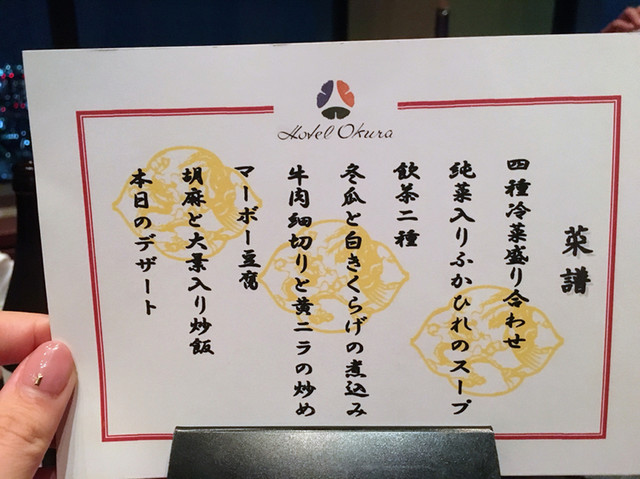 Hotel Okura
菜譜
四種冷菜盛り合わせ
純菜入りふかひれのスープ
飲茶二種
冬瓜と白きくらげの煮込み
牛肉細切りと黄ニラの炒め
マーボー豆腐
胡麻と大葉入り炒飯
本日のデザート